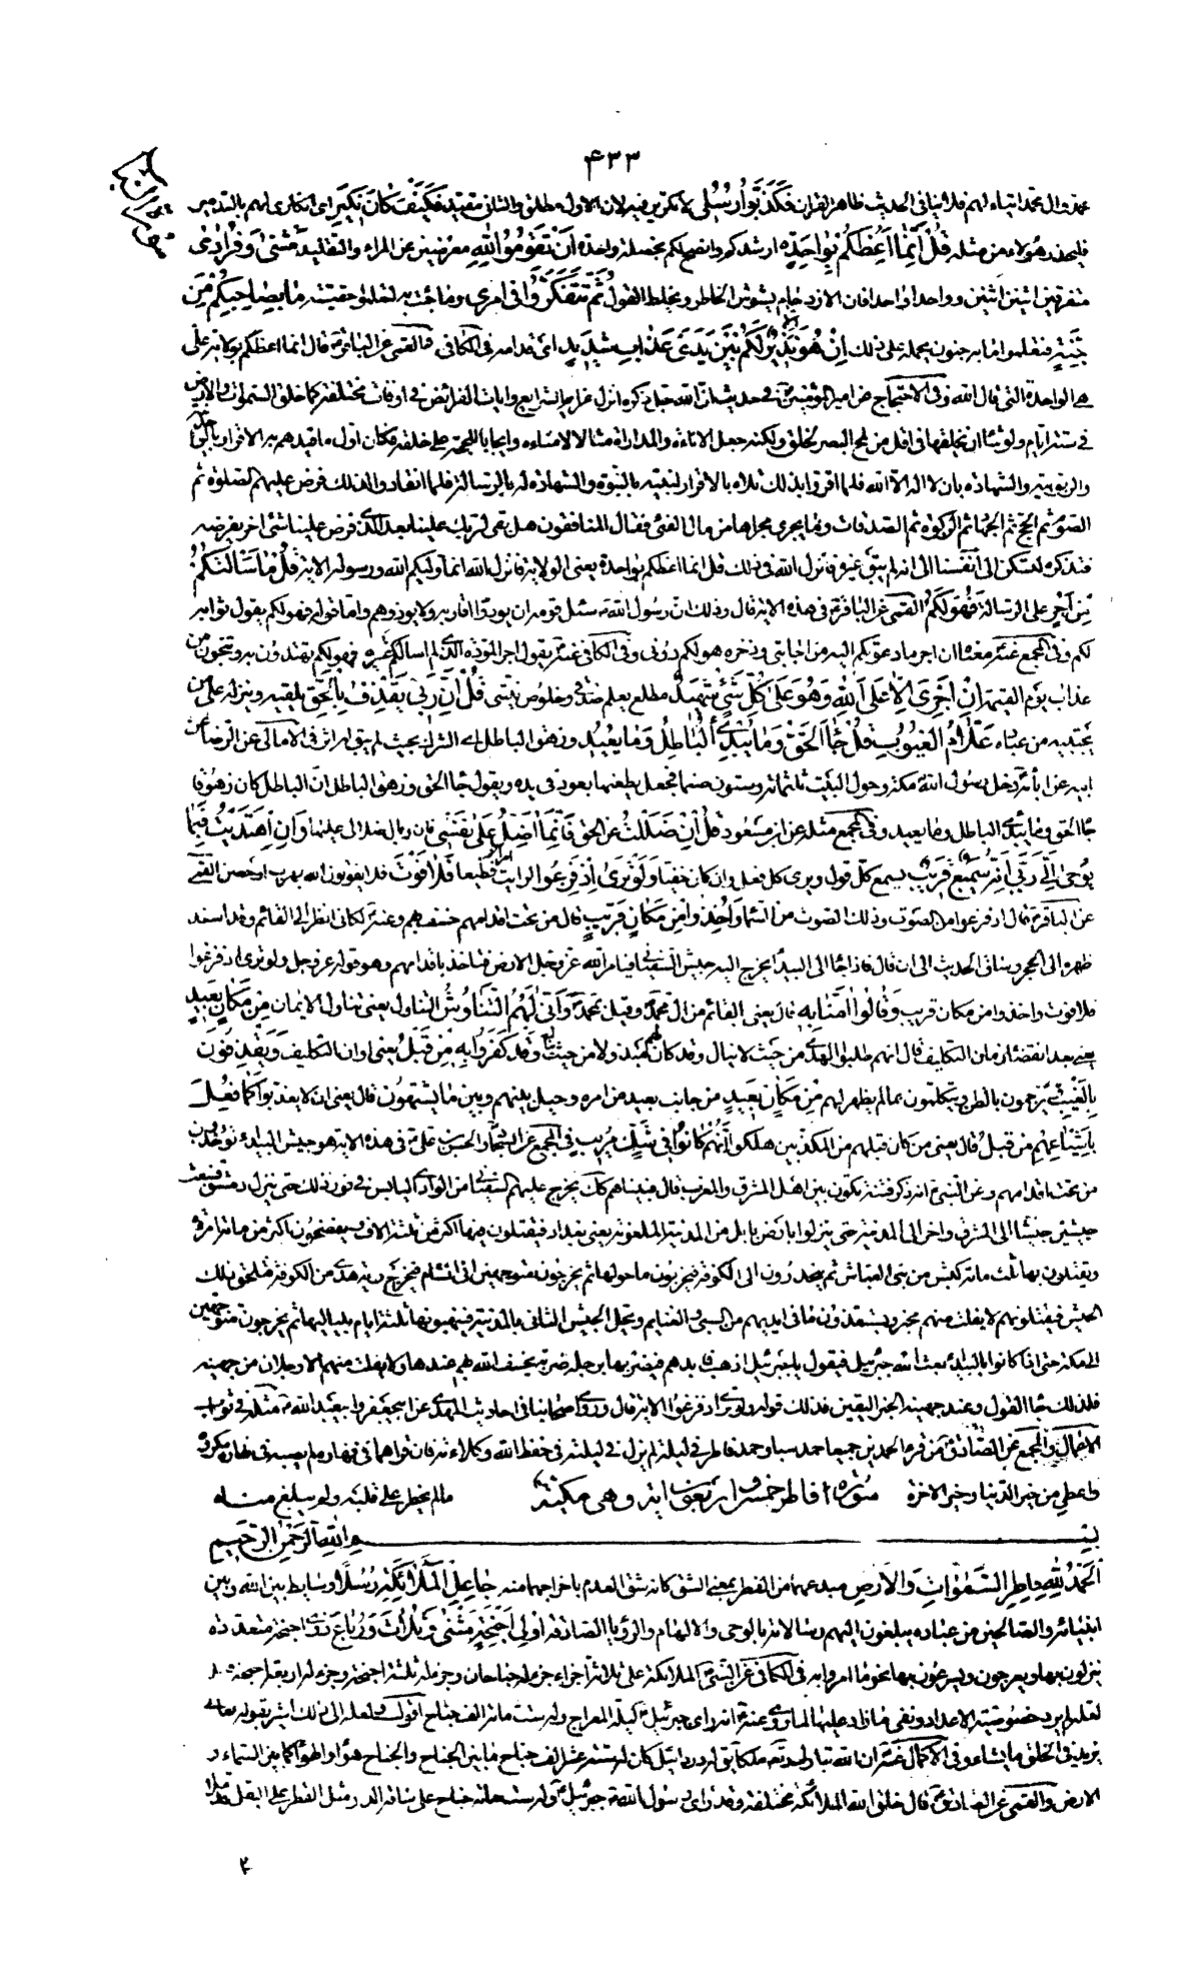 ۴۳۳
سورة السبا
محمد وال محمد انبياء لهم فلا ينافي الحديث ظاهر القران فَكَذَّبُوا رُسُلِي لا تكرير فيه لان الاول مطلق والثاني مقيد فَكَيْفَ كَانَ نَكِيرِ اى انكارى لهم بالتدمير
فليحذر هؤلاء من مثله قُلْ إِنَّمَا أَعِظُكُمْ بِوَاحِدَةٍ ارشدكم وانصح لكم بخصلة واحدة أَنْ تَقُومُوا لِلَّهِ معرضين عن المراء والتقليد مَثْنَى وَفُرَادَى
متفرقين اثنين اثنين وواحدا واحدا فان الازدحام يشوش الخاطر ويخلط القول ثُمَّ تَتَفَكَّرُوا في امرى وما جئت به لتعلموا حقيته مَا بِصَاحِبِكُمْ مِنْ
جِنَّةٍ فتعلموا ما به جنون يحمله على ذلك إِنْ هُوَ إِلَّا نَذِيرٌ لَكُمْ بَيْنَ يَدَيْ عَذَابٍ شَدِيدٍ اى قدامه في الكافي والقمى عن الباقر ع قال انما اعظكم بولاية على
هى الواحدة التى قال الله وفي الاحتجاج عن امير المؤمنين ع في حديث ان الله جل ذكره انزل عزايم الشرايع وايات الفرائض في اوقات مختلفة كما خلق السموات والارض
في ستة ايام ولو شاء ان يخلقها في اقل من لمح البصر لخلق ولكنه جعل الاناة والمداراة مثالا لامنائه وايجابا للحجة على خلقه فكان اول ما قيدهم به الاقرار بالوحدانية
والربوبية والشهادة بان لا اله الا الله فلما اقروا بذلك تلاه بالاقرار لنبيه بالنبوة والشهادة له بالرسالة فلما انقادوا لذلك فرض عليهم الصلوة ثم
الصوم ثم الحج ثم الجهاد ثم الزكوة ثم الصدقات وما يجرى مجراها من مال الفئ فقال المنافقون هل بقى لربك علينا بعد الذى فرض علينا شئ اخر يفرضه
فتذكره لتسكن انفسنا الى انه لم يبق غيره فانزل الله في ذلك قل انما اعظكم بواحدة يعنى الولاية فانزل الله انما وليكم الله ورسوله الاية قُلْ مَا سَأَلْتُكُمْ
مِنْ أَجْرٍ على الرسالة فَهُوَ لَكُمْ القمى عن الباقر ع في هذه الاية قال وذلك ان رسول الله ص سئل قومه ان يودوا اقاربه ولا يوذوهم واما قوله فهو لكم يقول ثوابه
لكم وفي المجمع عنه ع معناه ان اجر ما دعوتكم اليه من اجابتى وذخره هو لكم دونى وفي الكافي عنه ع يقول اجر المودة الذى لم اسالكم غيره فهو لكم تهتدون به وتنجون من
عذاب يوم القيمة إِنْ أَجْرِيَ إِلَّا عَلَى اللَّهِ وَهُوَ عَلَى كُلِّ شَيْءٍ شَهِيدٌ مطلع يعلم صدقى وخلوص نيتى قُلْ إِنَّ رَبِّي يَقْذِفُ بِالْحَقِّ يلقيه وينزله على من
يجتبيه من عباده عَلَّامُ الْغُيُوبِ قُلْ جَاءَ الْحَقُّ وَمَا يُبْدِئُ الْبَاطِلُ وَمَا يُعِيدُ وزهق الباطل اى الشرك بحيث لم يبق له اثر في الامالى عن الرضا ع عن
ابيه عن ابائه ع دخل رسول الله ص مكة وحول البيت ثلثمائة وستون صنما فجعل يطعنها بعود في يده ويقول جاء الحق وزهق الباطل ان الباطل كان زهوقا
جاء الحق وما يبدئ الباطل وما يعيد وفي المجمع مثله عن ابن مسعود قُلْ إِنْ ضَلَلْتُ عن الحق فَإِنَّمَا أَضِلُّ عَلَى نَفْسِي فان وبال ضلالى عليها وَإِنِ اهْتَدَيْتُ فَبِمَا
يُوحِي إِلَيَّ رَبِّي إِنَّهُ سَمِيعٌ قَرِيبٌ يسمع كل قول ويرى كل فعل وان كان خفيا وَلَوْ تَرَى إِذْ فَزِعُوا لرايت امرا فظيعا فَلَا فَوْتَ فلا يفوتون الله بهرب او حصن القمى
عن الباقر ع قال اذ فزعوا من الصوت وذلك الصوت من السماء وَأُخِذُوا مِنْ مَكَانٍ قَرِيبٍ قال من تحت اقدامهم خسف بهم وعنه ع لكانى انظر الى القائم وقد اسند
ظهره الى الحجر وساق الحديث الى ان قال فاذا جاء الى البيداء يخرج اليه جيش السفيانى فيامر الله عز وجل الارض فتاخذ باقدامهم وهو قوله عز وجل ولو ترى اذ فزعوا
فلا فوت واخذوا من مكان قريب وَقَالُوا آمَنَّا بِهِ قال يعنى القائم من ال محمد وقيل بمحمد وَأَنَّى لَهُمُ التَّنَاوُشُ التناول يعنى تناول الايمان مِنْ مَكَانٍ بَعِيدٍ
يعنى بعد انقضاء زمان التكليف قال انهم طلبوا الهدى من حيث لا ينال وقد كان لهم مبذولا من حيث ينال وَقَدْ كَفَرُوا بِهِ مِنْ قَبْلُ يعنى اوان التكليف وَيَقْذِفُونَ
بِالْغَيْبِ يرجمون بالظن ويتكلمون بما لم يظهر لهم مِنْ مَكَانٍ بَعِيدٍ من جانب بعيد من امره وحيل بينهم وبين ما يشتهون قال يعنى ان لا يعذبوا كَمَا فُعِلَ
بِأَشْيَاعِهِمْ مِنْ قَبْلُ قال يعنى من كان قبلهم من المكذبين هلكوا إِنَّهُمْ كَانُوا فِي شَكٍّ مُرِيبٍ في المجمع عن السجاد والحسن بن على ع في هذه الاية هو جيش البيداء يؤخذون
من تحت اقدامهم وعن النبى ص انه ذكر فتنة تكون بين اهل المشرق والمغرب قال فبيناهم كك يخرج عليهم السفيانى من الوادى اليابس في فور ذلك حتى ينزل دمشق فيبعث
جيشين جيشا الى المشرق واخر الى المدينة حتى ينزلوا بارض بابل من المدينة الملعونة يعنى بغداد فيقتلون اكثر من ثلثة الاف ويفضحون اكثر من مائة امراة
ويقتلون بها ثلثمائة كبش من بنى العباس ثم ينحدرون الى الكوفة فيخربون ما حولها ثم يخرجون متوجهين الى الشام فيخرج راية هدى من الكوفة فتلحق ذلك
الجيش فيقتلونهم لا يفلت منهم مخبر ويستنقذون ما في ايديهم من السبى والغنايم ويحل الجيش الثانى بالمدينة فينهبونها ثلثة ايام بلياليها ثم يخرجون متوجهين
الى مكة حتى اذا كانوا بالبيداء بعث الله جبرئيل فيقول يا جبرئيل اذهب فابدهم فيضربها برجله ضربة يخسف الله بهم عندها ولا يفلت منهم الا رجلان من جهينة
فلذلك جاء القول وعند جهينة الخبر اليقين فذلك قوله ولو ترى اذ فزعوا الاية قال وروى اصحابنا في احاديث المهدى عن ابى جعفر وابى عبد الله ع مثله في ثواب
الاعمال والمجمع عن الصادق ع من قرء الحمدين جميعا حمد سبا وحمد فاطر في ليلة لم يزل في ليلته في حفظ الله وكلاءته فان قراهما في نهاره لم يصبه في نهاره مكروه
واعطى من خير الدنيا وخير الاخرة ما لم يخطر على قلبه ولم يبلغ مناه
سورة فاطر خمس واربعون اية وهى مكية
بسم الله الرحمن الرحيم
الْحَمْدُ لِلَّهِ فَاطِرِ السَّمَوَاتِ وَالْأَرْضِ مبدعهما من الفطر بمعنى الشق كانه شق العدم باخراجهما منه جَاعِلِ الْمَلَائِكَةِ رُسُلًا وسايط بين الله وبين
انبيائه والصالحين من عباده يبلغون اليهم رسالاته بالوحى والالهام والرؤيا الصادقة أُولِي أَجْنِحَةٍ مَثْنَى وَثُلَاثَ وَرُبَاعَ ذوى اجنحة متعددة
ينزلون بها ويعرجون ويسرعون بها نحو ما امروا به في الكافي عن النبى ص الملائكة على ثلاثة اجزاء جزء له جناحان وجزء له ثلثة اجنحة وجزء له اربعة اجنحة
لعله لم يرد خصوصية الاعداد ونفى ما زاد عليها لما روى عنه ص انه راى جبرئيل ليلة المعراج وله ستمائة الف جناح اقول ولعله الى ذلك اشير بقوله تعالى
يزيد في الخلق ما يشاء وفي الاكمال عنه ص ان لله تبارك وتع ملكا يق له دردائيل كان له ستة عشر الف جناح ما بين الجناح والجناح هواء والهواء كما بين السماء و
الارض والقمى عن الصادق ع قال خلق الله الملائكة مختلفة وقد راى رسول الله ص جبرئيل وله ستمائة جناح على ساقه الدر مثل القطر على البقل قد ملا